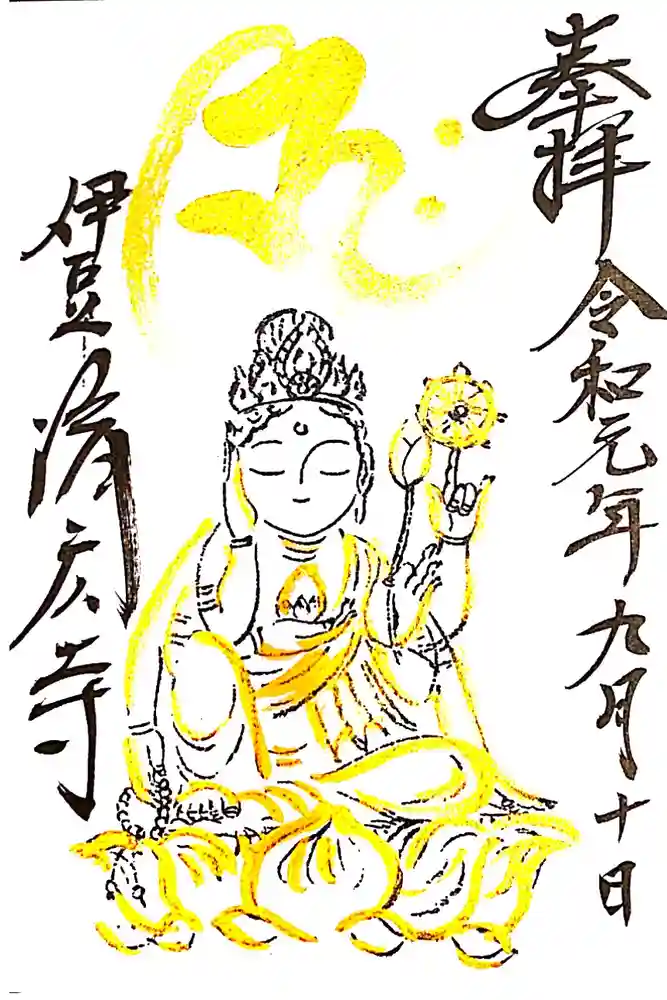 奉拝 令和元年九月十日
𑖮𑖿𑖨𑖱𑖾
伊豆 済広寺